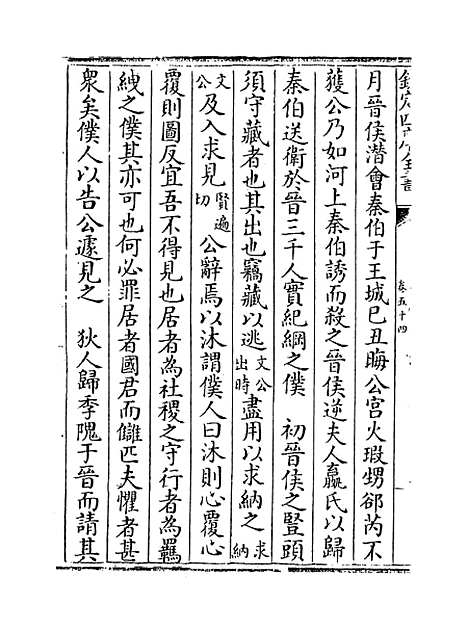 欽定四庫全書
卷五十四
月晉侯潛會秦伯于王城巳丑晦公宫火瑕甥郤芮不
獲公乃如河上秦伯誘而殺之晉侯逆夫人嬴氏以歸
秦伯送衛於晉三千人實紀綱之僕 初晉侯之豎頭
須守藏者也其出也竊藏以逃文公出時盡用以求納之求納
文公及入求見賢遍切公辭焉以沐謂僕人曰沐則心覆心
覆則圖反宜吾不得見也居者為社稷之守行者為羈
絏之僕其亦可也何必罪居者國君而讎匹夫懼者甚
衆矣僕人以告公遽見之 狄人歸季隗于晉而請其